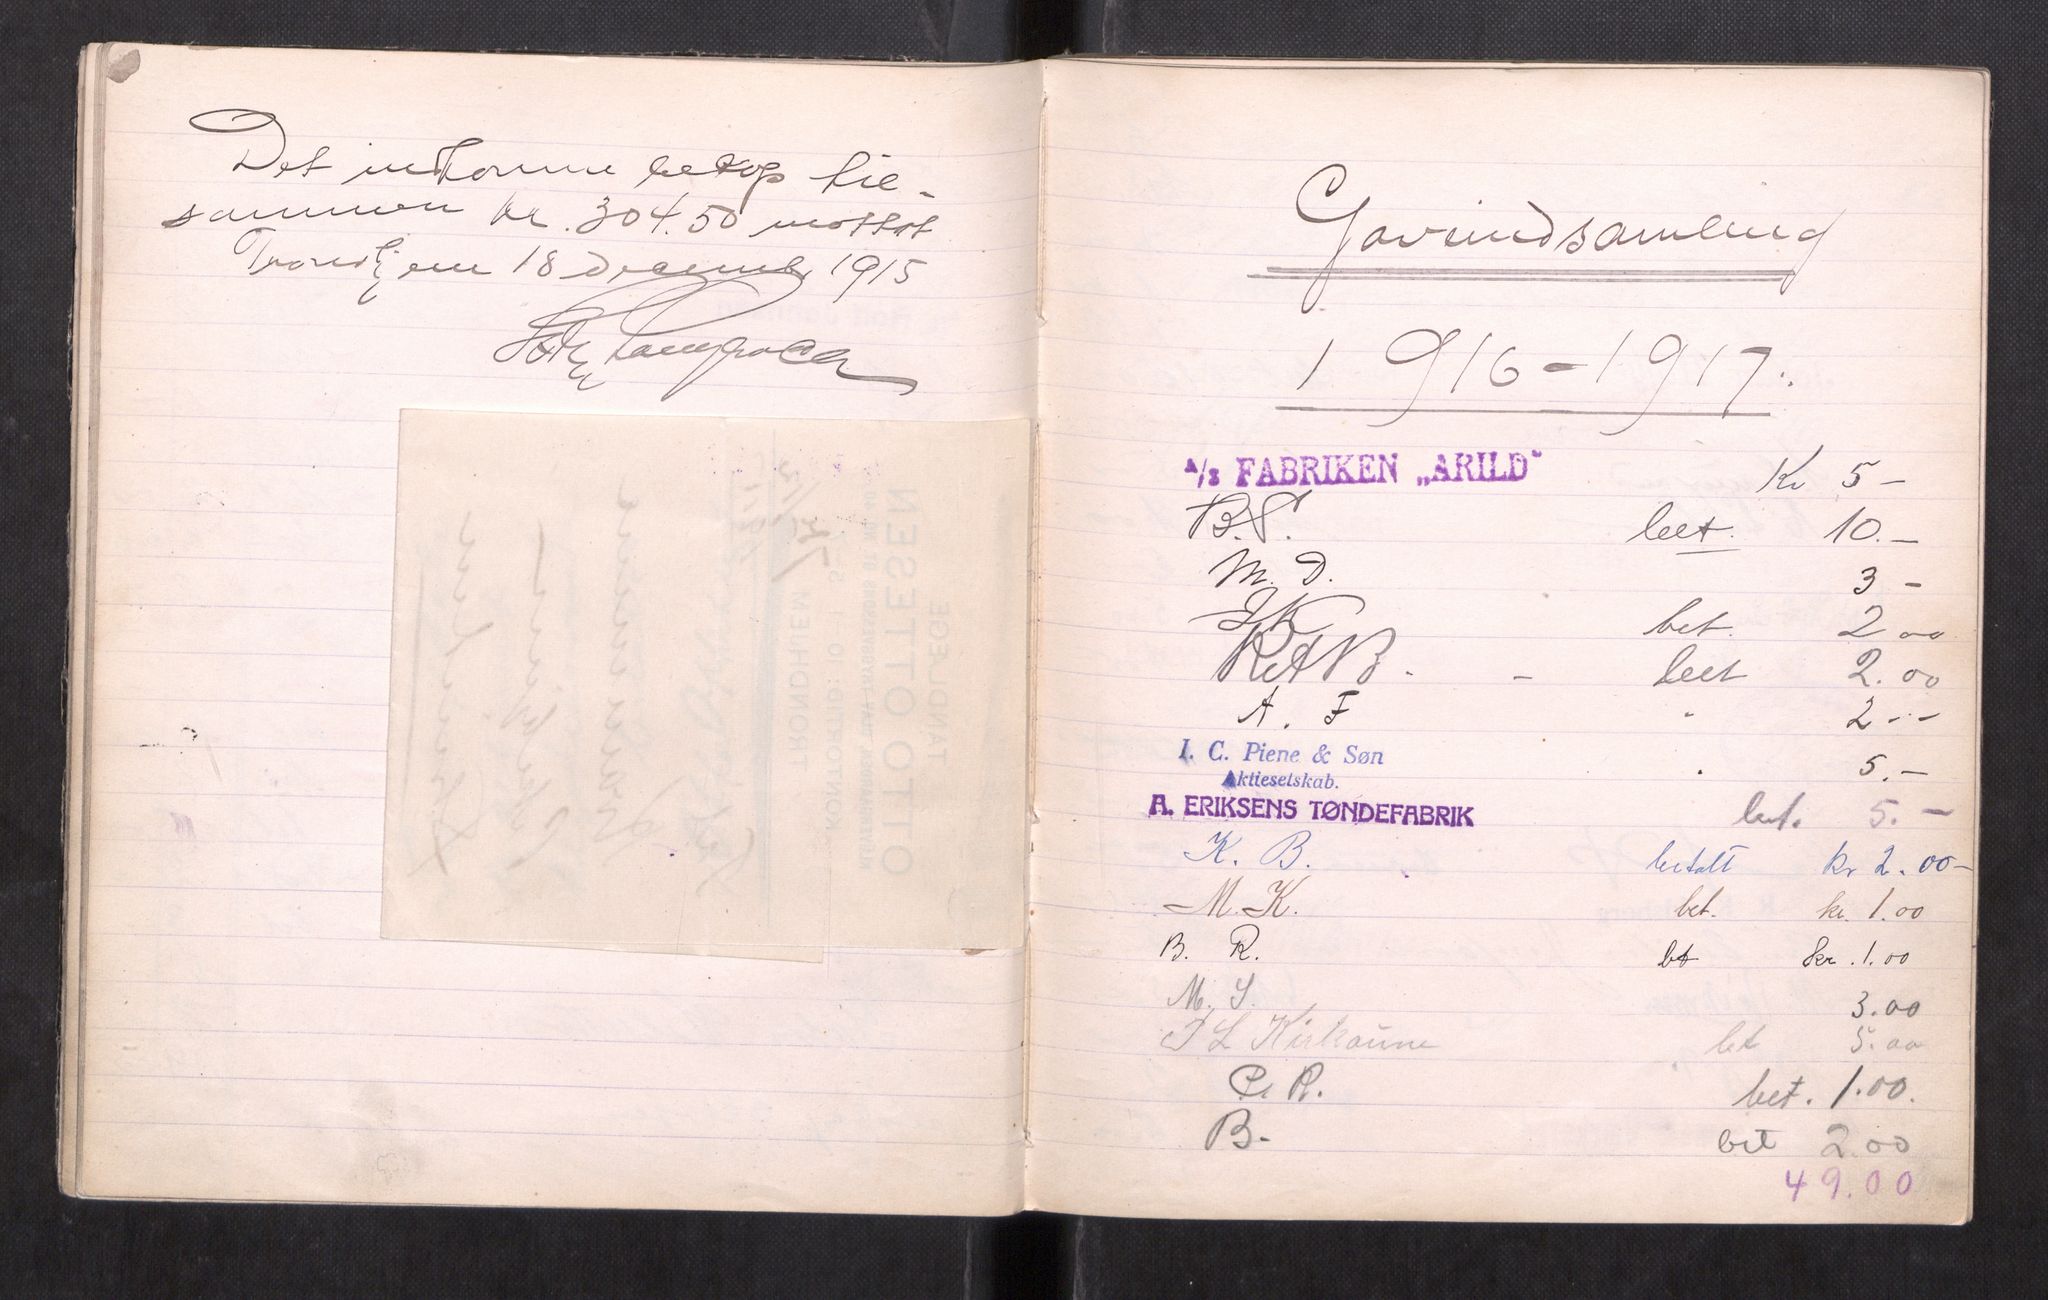 Det indkomne beløp til-
sammen kr. 304.50 mottat
Trondhjem 18 December 1915
OTTO OTTESEN
TANDLÆGE
TRONDHJEM
KONTORTID: 10-1 5-
Gavеindsamling
1916-1917.
A/S FABRIKEN „ARILD" Kr 5-
B.S. bet. 10.-
M. D. 3-
J K bet. 2 00
R & A B. - bet 2.00
A. F " 2--
I. C. Piene & Søn 5.-
Aktieselskab.
A. ERIKSENS TØNDEFABRIK bet. 5.-
K. B. betalt kr 2.00-
M. K. bet. kr. 1.00
B. R. bt kr. 1.00
M. S. 3.00
Kirkaune bet 5.00
C. R. bet. 1.00.
B- bet 2.00
49.00